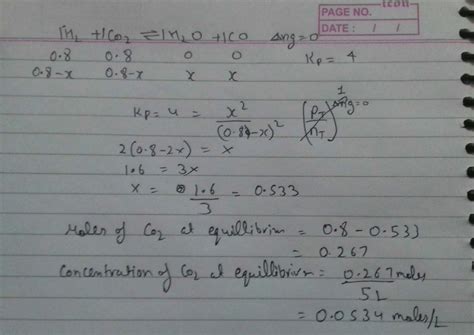 icon
PAGE NO.
DATE : / /
1H₂ + 1CO₂ ⇌ 1H₂O + 1CO Δng=0
0.8 0.8 0 0 Kp = 4
0.8-x 0.8-x x x
Kp= 4 = x²/(0.8-x)² (PT/nT)^Δng=0 1
2(0.8-2x) = x
1.6 = 3x
x = 1.6/3 = 0.533
Moles of CO₂ at equillibrium = 0.8 - 0.533
= 0.267
Concentration of CO₂ at equillibrium = 0.267 moles/5L
= 0.0534 moles/L